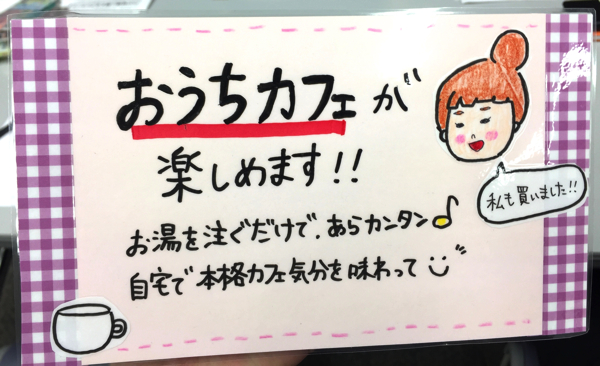 おうちカフェが
楽しめます!!
私も買いました!!
お湯を注ぐだけで、あらカンタン♪
自宅で本格カフェ気分を味わって